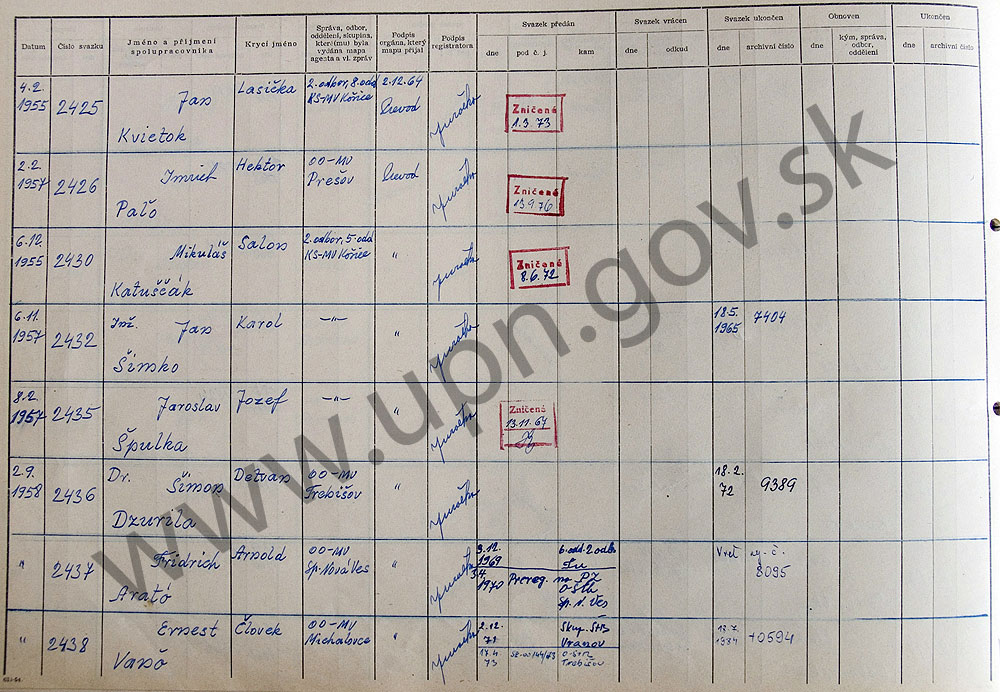 Datum
Číslo svazku
Jméno a příjmení
spolupracovníka
Krycí jméno
Správa, odbor,
oddělení, skupina,
které(mu) byla
vydána mapa
agenta a vl. zpráv
Podpis
orgána, který
mapu přijal
Podpis
registratora
Svazek předán
dne
pod č. j.
kam
Svazek vrácen
dne
odkud
Svazek ukončen
dne
archivní číslo
Obnoven
dne
kým, správa,
odbor,
oddělení
Ukončen
dne
archivní číslo
4.2.
1955
2425
Jan
Kvietok
Lasička
2. odbor, 8. odd
KS-MV Košice
2.12.64
Zničené
1.3 73
2.2.
1957
2426
Imrich
Paľo
Hektor
OO-MV
Prešov
Zničené
13.9.76
6.12.
1955
2430
Mikuláš
Katuščák
Salon
2. odbor, 5. odd
KS-MV Košice
"
Zničené
8.6.72
6.11.
1957
2432
Inž. Jan
Šimko
Karol
-"-
"
18.5.
1965
7404
8.2.
1957
2435
Jaroslav
Špulka
Jozef
-"-
"
Zničené
13.11.64
2.9.
1958
2436
Dr. Šimon
Dzurila
Detvan
OO-MV
Trebišov
"
18.2.
72
9389
"
2437
Fridrich
Arató
Arnold
OO-MV
Sp. Nová Ves
"
9.12.
1969
6. odd. 2 odb.
3.4
1970
Prereg.
na PZ
OŠtB
Sp. N. Ves
8095
"
2438
Ernest
Vanő
Človek
OO-MV
Michalovce
"
2.12.
71
Skup. StB
Vranov
17.4.
73
Trebišov
10594
www.upn.gov.sk